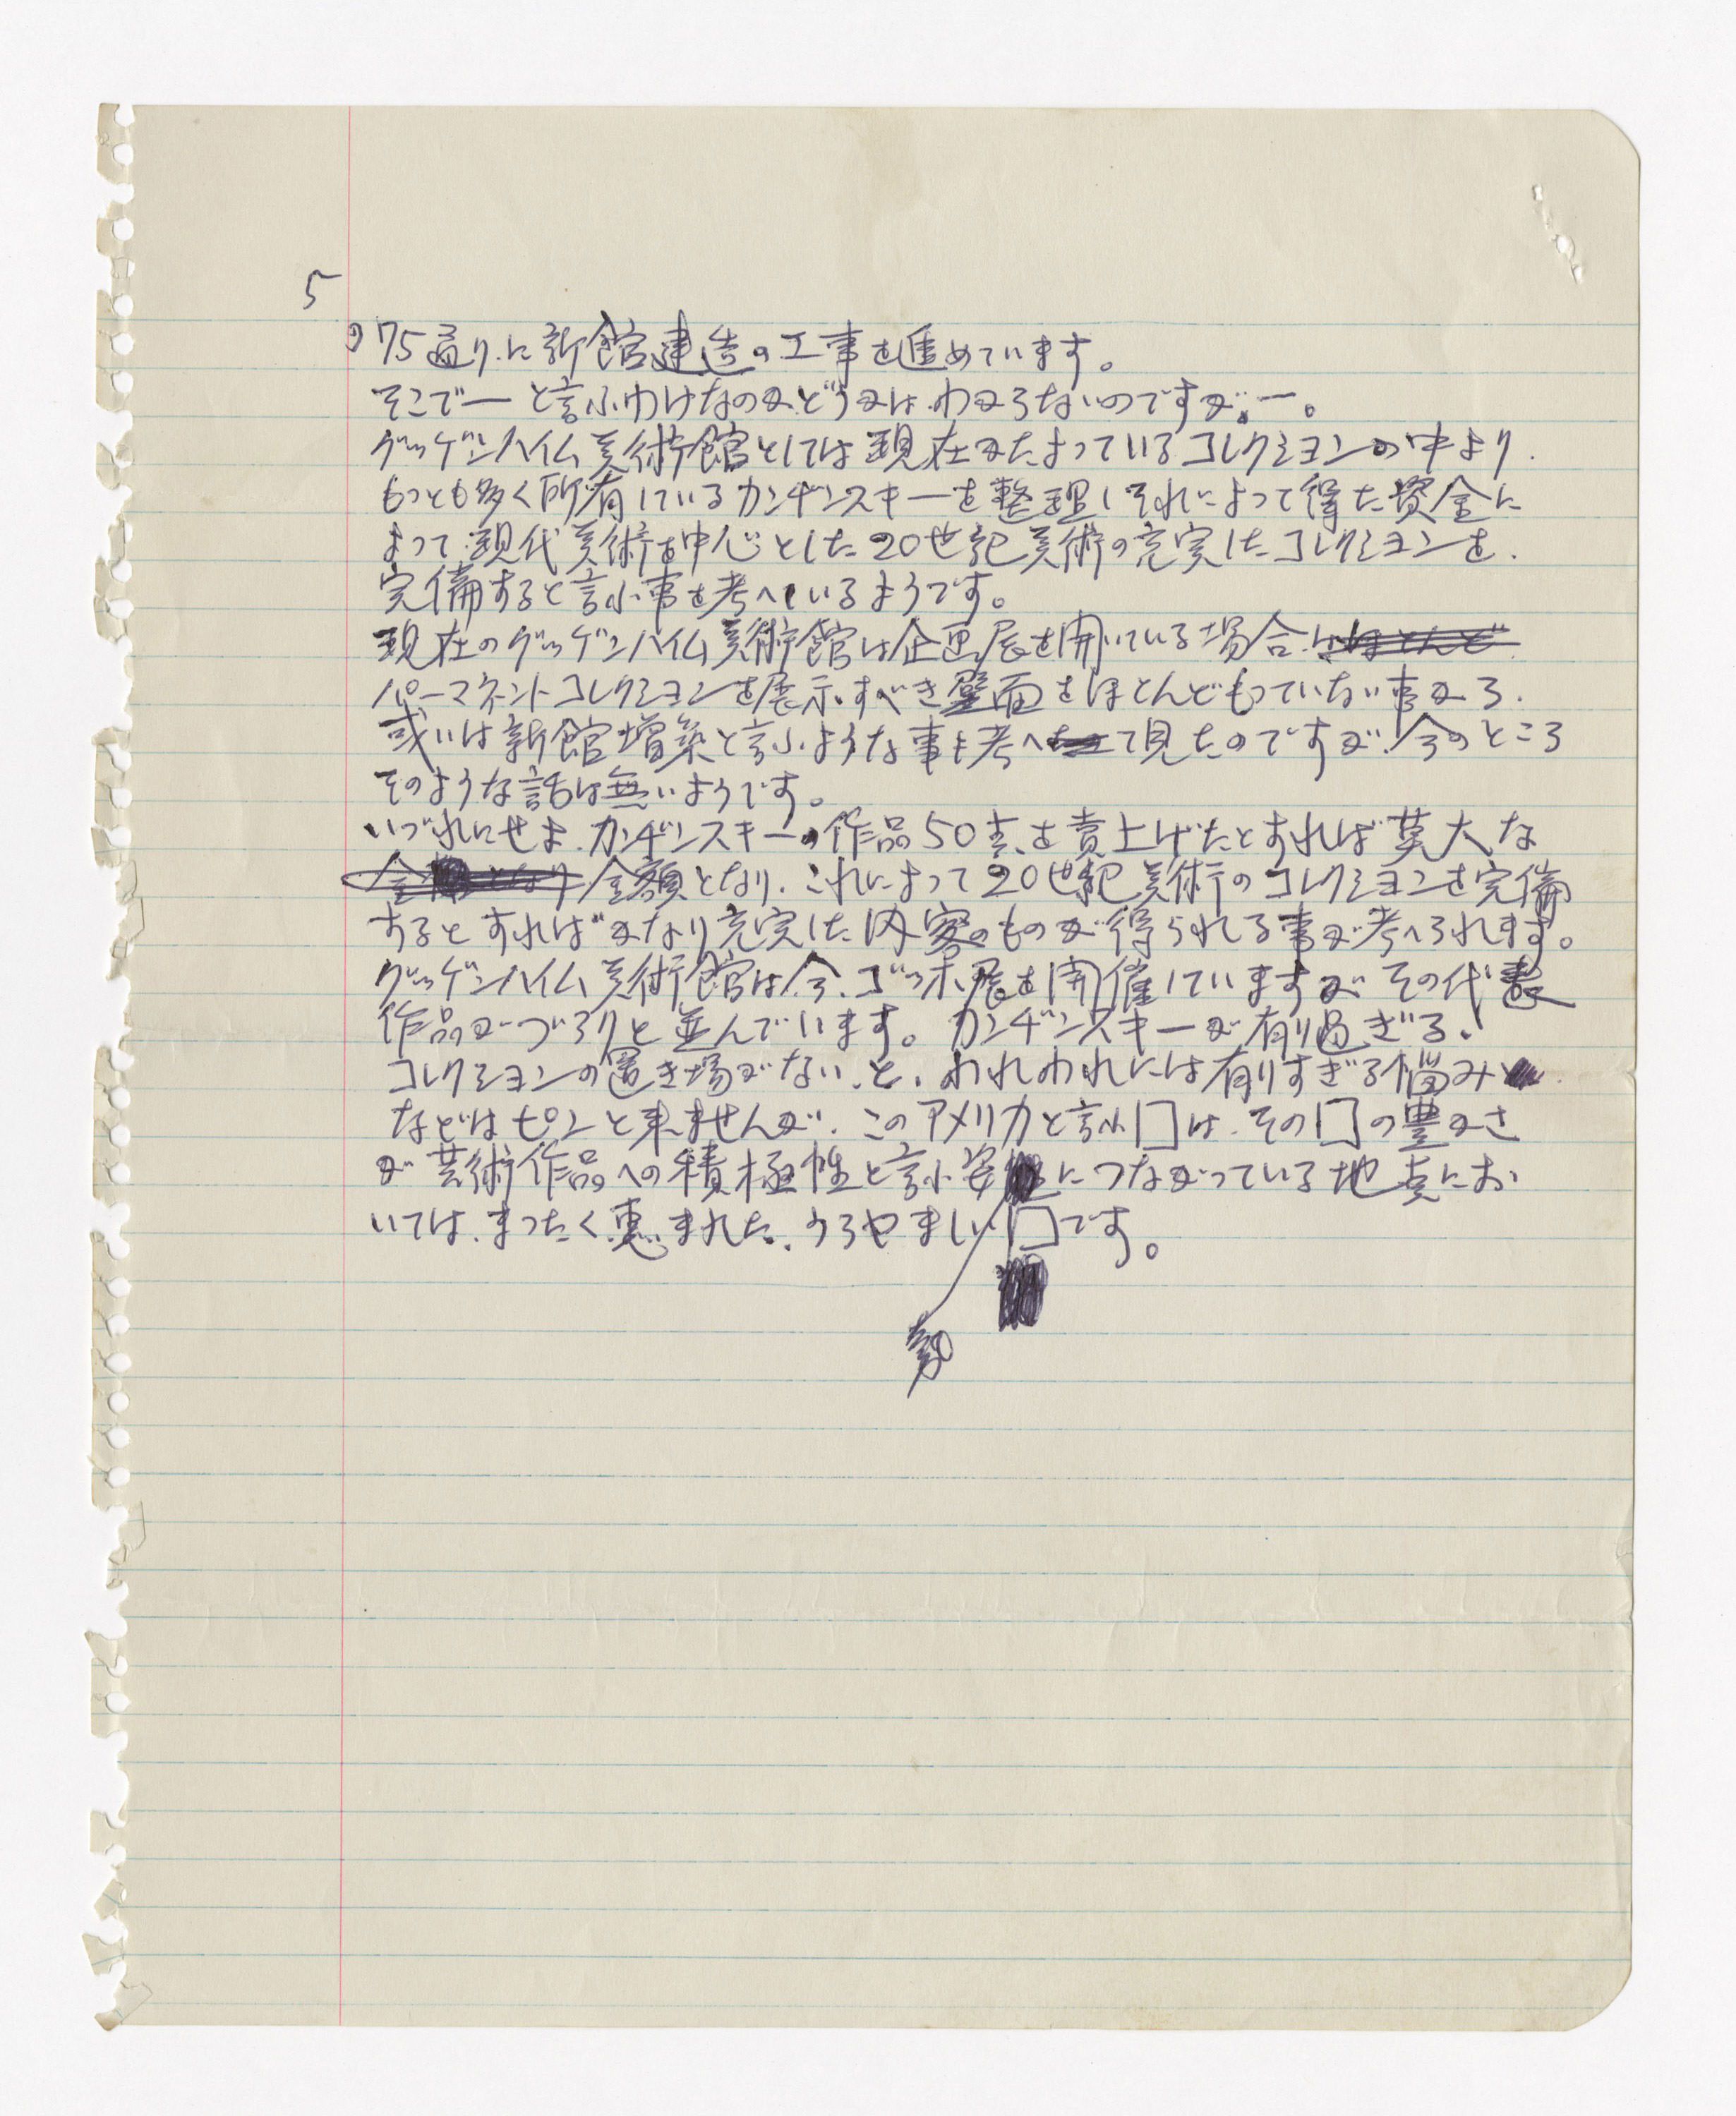 5
の75通りに新館建造の工事を進めています。
そこでーと言ふわけなのかどうかはわからないのですが。ー。
グッゲンハイム美術館としては現在かたよっているコレクションの中より
もっとも多く所有しているカンヂンスキーを整理しそれによって得た資金に
よって現代美術を中心とした20世紀美術の充実したコレクションを
完備すると言ふ事を考へているようです。
現在のグッゲンハイム美術館は企画展を開いている場合はほとんど
パーマネントコレクションを展示すべき壁面をほとんどもっていない事から
或いは新館増築と言ふような事を考へて見たのですが、今のところ
そのような話は無いようです。
いづれにせよ、カンヂンスキーの作品50点を賣上げたとすれば莫大な
金額となり、これによって20世紀美術のコレクションを完備
するとすればかなり充実した内容のものが得られる事が考へられます。
グッゲンハイム美術館は今、ゴッホ展を開催していますがその代表
作品がづらりと並んでいます。カンヂンスキーが有り過ぎる、
コレクションの置き場がない、と、われわれには有りすぎる悩み
などはピンと来ませんが、このアメリカと言ふ囗は、その囗の豊かさ
が芸術作品への積極性と言ふ姿勢につながっている地点にお
いては、まったく恵まれた、うらやましい囗です。